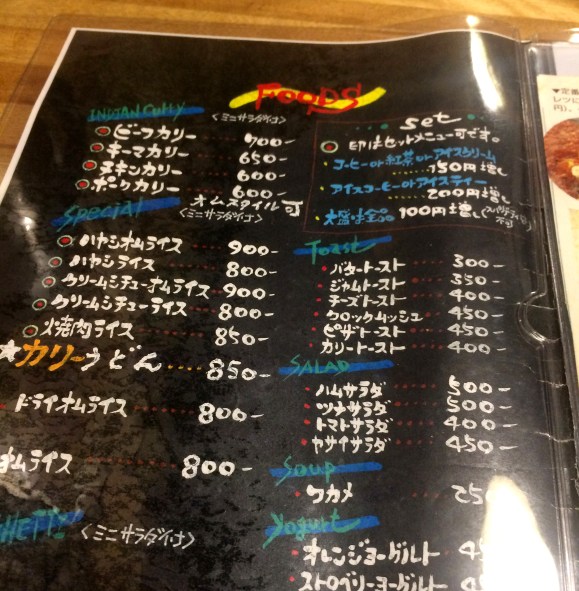 FOODS
INDIAN CURRY 〈ミニサラダ付〉
ビーフカリー 700-
キーマカリー 650-
チキンカリー 600-
ポークカリー 600-
オムスタイル可
Special 〈ミニサラダ付〉
ハヤシオムライス 900-
ハヤシライス 800-
クリームシチューオムライス 900-
クリームシチューライス 800-
火焼肉ライス 850-
★カリーうどん 850-
ドライオムライス 800-
オムライス 800-
〈ミニサラダ付〉
Set
印はセットメニュー可です。
コーヒーor紅茶orアイスクリーム
150円増し
アイスコーヒーorアイスティー
200円増し
大盛全品 100円増し
Toast
バタートースト 300-
ジャムトースト 350-
チーズトースト 400-
クロックムッシュ 450-
ピザトースト 450-
カリートースト 400-
SALAD
ハムサラダ 500-
ツナサラダ 500-
トマトサラダ 400-
ヤサイサラダ 450-
Soup
ワカメ 250
Yogurt
オレンジヨーグルト
ストロベリーヨーグルト
▼定番